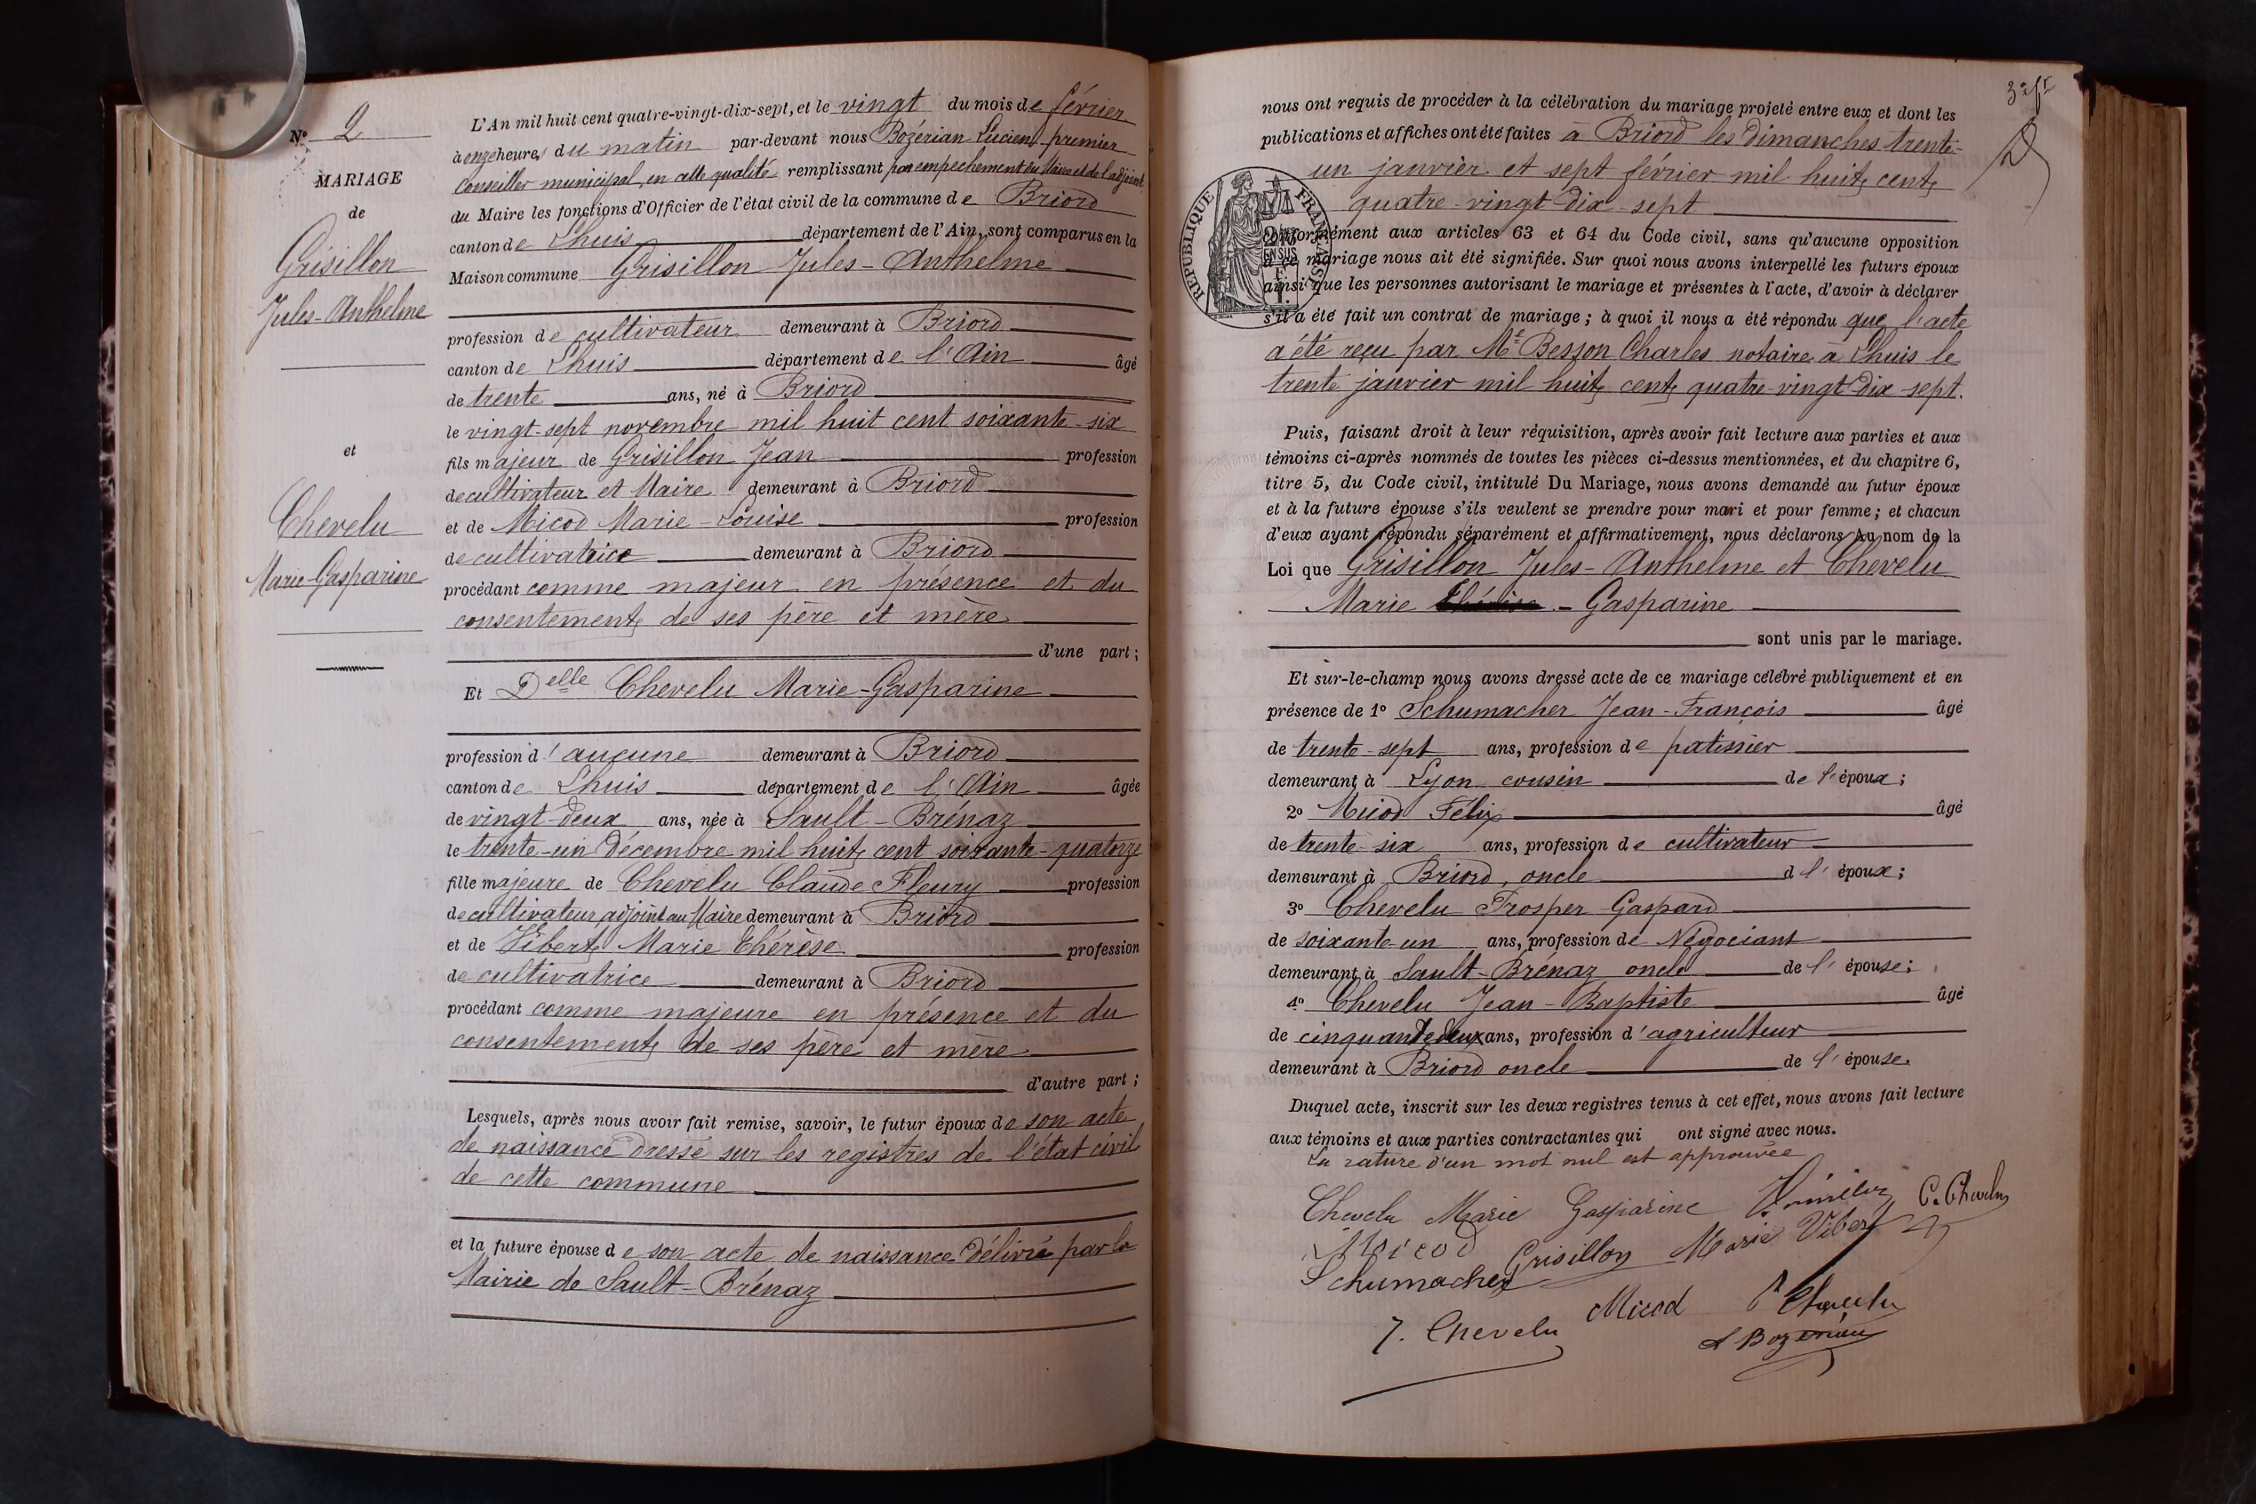 N° 2
MARIAGE
de
Grisillon
Jules-Anthelme
et
Chevelu
Marie-Gasparine
L'An mil huit cent quatre-vingt-dix-sept, et le vingt du mois de février
à onze heures du matin par-devant nous Bozérian Lucien premier
conseiller municipal, en cette qualité remplissant par empechement du Maire et de l'adjoint
du Maire les fonctions d'Officier de l'état civil de la commune de Briord
canton de Lhuis département de l'Ain, sont comparus en la
Maison commune Grisillon Jules-Anthelme
profession de cultivateur demeurant à Briord
canton de Lhuis département de l'Ain âgé
de trente ans, né à Briord
le vingt-sept novembre mil huit cent soixante-six
fils majeur de Grisillon Jean profession
de cultivateur et Maire demeurant à Briord
et de Micod Marie-Louise profession
de cultivatrice demeurant à Briord
procédant comme majeur en présence et du
consentement de ses père et mère
d'une part ;
Et Delle Chevelu Marie-Gasparine
profession d'aucune demeurant à Briord
canton de Lhuis département de l'Ain âgée
de vingt-deux ans, née à Sault-Brénaz
le trente-un Décembre mil huit cent soixante-quatorze
fille majeure de Chevelu Claude Fleury profession
de cultivateur, adjoint au Maire demeurant à Briord
et de Vibert Marie Thérèse profession
de cultivatrice demeurant à Briord
procédant comme majeure en présence et du
consentement de ses père et mère
d'autre part ;
Lesquels, après nous avoir fait remise, savoir, le futur époux de son acte
de naissance dressé sur les registres de l'état civil
de cette commune
et la future épouse de son acte de naissance délivré par la
Mairie de Sault-Brénaz
nous ont requis de procéder à la célébration du mariage projeté entre eux et dont les
publications et affiches ont été faites à Briord les Dimanches trente-
un janvier et sept février mil huit cent
quatre-vingt dix-sept
REPUBLIQUE FRANÇAISE
conformément aux articles 63 et 64 du Code civil, sans qu'aucune opposition
à ce mariage nous ait été signifiée. Sur quoi nous avons interpellé les futurs époux
ainsi que les personnes autorisant le mariage et présentes à l'acte, d'avoir à déclarer
s'il a été fait un contrat de mariage ; à quoi il nous a été répondu que l'acte
a été reçu par Me Besson Charles notaire à Lhuis le
trente janvier mil huit cent quatre-vingt dix-sept.
Puis, faisant droit à leur réquisition, après avoir fait lecture aux parties et aux
témoins ci-après nommés de toutes les pièces ci-dessus mentionnées, et du chapitre 6,
titre 5, du Code civil, intitulé Du Mariage, nous avons demandé au futur époux
et à la future épouse s'ils veulent se prendre pour mari et pour femme ; et chacun
d'eux ayant répondu séparément et affirmativement, nous déclarons au nom de la
Loi que Grisillon Jules-Anthelme et Chevelu
Marie Thérèse - Gasparine
sont unis par le mariage.
Et sur-le-champ nous avons dressé acte de ce mariage célébré publiquement et en
présence de 1° Schumacher Jean-François âgé
de trente-sept ans, profession de patissier
demeurant à Lyon cousin de l'époux ;
2° Micod Félix âgé
de trente-six ans, profession de cultivateur
demeurant à Briord, oncle d l' époux ;
3° Chevelu Prosper Gaspard
de soixante-un ans, profession de Négociant
demeurant à Sault-Brénaz oncle de l'épouse ;
4° Chevelu Jean-Baptiste âgé
de cinquante deux ans, profession d'agriculteur
demeurant à Briord oncle de l'épouse
Duquel acte, inscrit sur les deux registres tenus à cet effet, nous avons fait lecture
aux témoins et aux parties contractantes qui ont signé avec nous.
La rature d'un mot nul est approuvée
Chevelu Marie Gasparine C. Chevelu
Micod Grisillon Marie Vibert
Schumacher
J. Chevelu Micod P Chevelu
L Bozérian